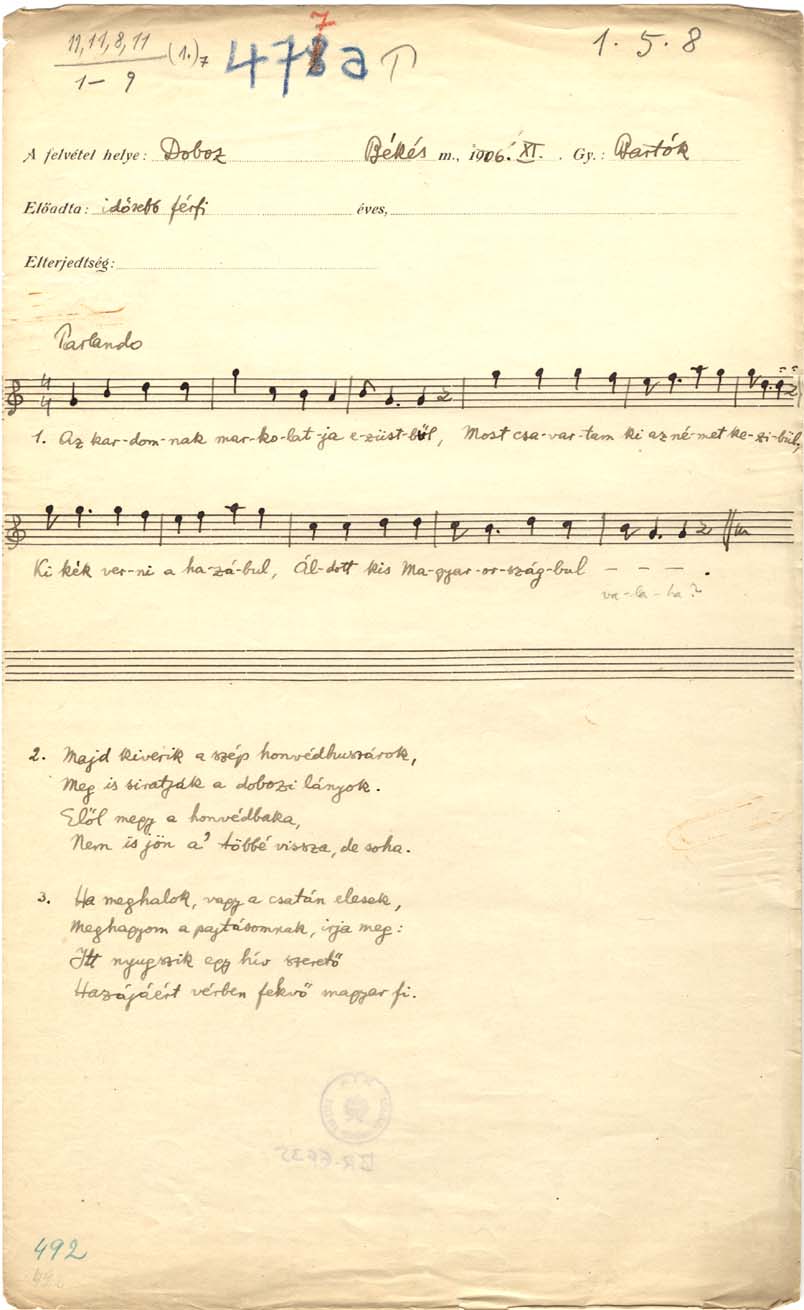 11, 11, 8, 11 (1.)7
1 – 9
7
478 a
1. 5. 8
A felvétel helye: Doboz Békés m., 1906. XI. Gy.: Bartók
Előadta: idősebb férfi éves,
Elterjedtség:
Parlando
4
4
1. Az kar-dom-nak mar-ko-lat-ja e-züst-ből, Most csa-var-tam ki az né-met ke-zi-bül,
Ki kék ver-ni a ha-zá-bul, Ál-dott kis Ma-gyar-or-szág-bul – – – .
va-la-ha?
2. Majd kiverik a szép honvédhuszárok,
Meg is siratják a dobozi lányok.
Elől megy a honvédbaka,
Nem is jön a' többé vissza, de soha.
3. Ha meghalok, vagy a csatán elesek,
Meghagyom a pajtásomnak, irja meg:
Itt nyugszik egy hív szerető
Hazájáért vérben fekvő magyar fi.
492